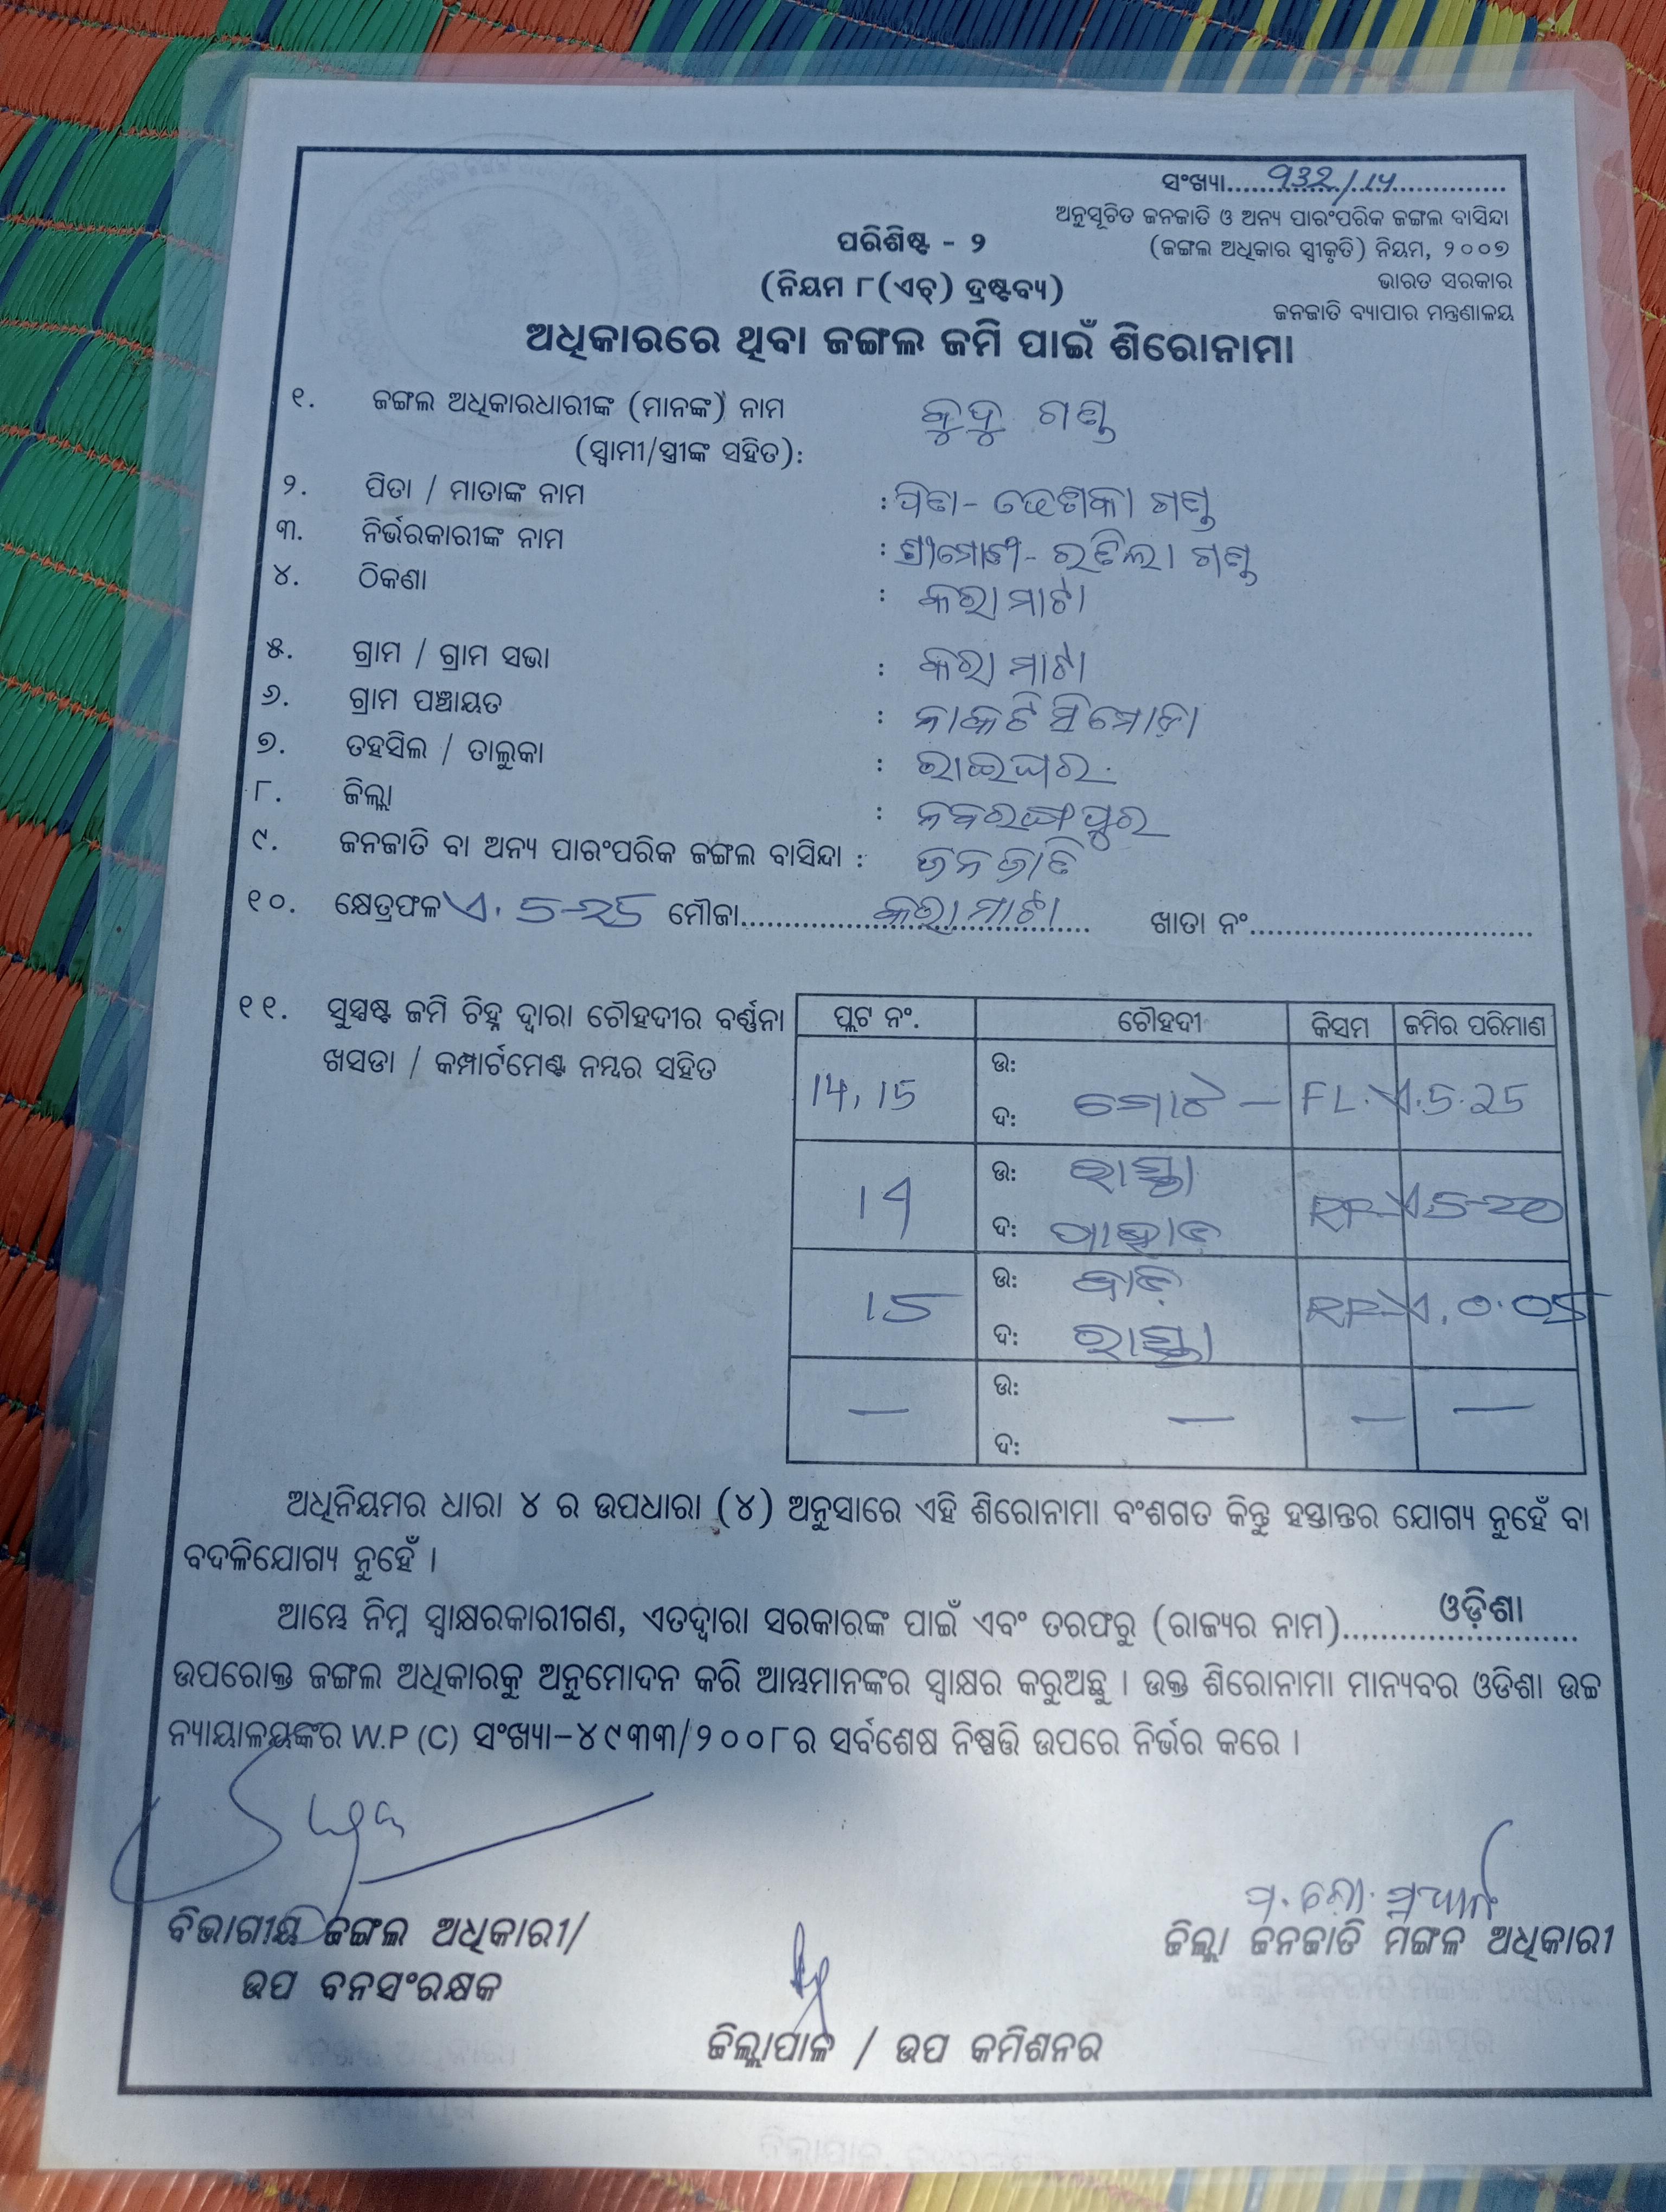 ସଂଖ୍ୟା.......932/14.......
ଅନୁସୂଚିତ ଜନଜାତି ଓ ଅନ୍ୟ ପାରଂପରିକ ଜଙ୍ଗଲ ବାସିନ୍ଦା
(ଜଙ୍ଗଲ ଅଧିକାର ସ୍ୱୀକୃତି) ନିୟମ, ୨୦୦୭
ଭାରତ ସରକାର
ଜନଜାତି ବ୍ୟାପାର ମନ୍ତ୍ରଣାଳୟ
ପରିଶିଷ୍ଟ - ୨
(ନିୟମ ୮(ଏଚ୍) ଦ୍ରଷ୍ଟବ୍ୟ)
ଅଧିକାରରେ ଥିବା ଜଙ୍ଗଲ ଜମି ପାଇଁ ଶିରୋନାମା
୧. ଜଙ୍ଗଲ ଅଧିକାରଧାରୀଙ୍କ (ମାନଙ୍କ) ନାମ ଗଣ୍ଡ
(ସ୍ୱାମୀ/ସ୍ତ୍ରୀଙ୍କ ସହିତ):
୨. ପିତା / ମାତାଙ୍କ ନାମ : ପିତା- ଗଣ୍ଡ
୩. ନିର୍ଭରକାରୀଙ୍କ ନାମ : ଗଣ୍ଡ
୪. ଠିକଣା : କରାମାଟା
୫. ଗ୍ରାମ / ଗ୍ରାମ ସଭା : କରାମାଟା
୬. ଗ୍ରାମ ପଞ୍ଚାୟତ : ନାକଟିସିମୋଡ଼ା
୭. ତହସିଲ / ତାଲୁକା : ରାଇଘର
୮. ଜିଲ୍ଲା : ନବରଙ୍ଗପୁର
୯. ଜନଜାତି ବା ଅନ୍ୟ ପାରଂପରିକ ଜଙ୍ଗଲ ବାସିନ୍ଦା : ଜନଜାତି
୧୦. କ୍ଷେତ୍ରଫଳ ଏ. 5-25 ମୌଜା.......କରାମାଟା....... ଖାତା ନଂ..............
୧୧. ସୁସ୍ପଷ୍ଟ ଜମି ଚିହ୍ନ ଦ୍ୱାରା ଚୌହଦୀର ବର୍ଣ୍ଣନା
ଖସଡା / କମ୍ପାର୍ଟମେଣ୍ଟ ନମ୍ବର ସହିତ
ପ୍ଲଟ ନଂ. ଚୌହଦୀ କିସମ ଜମିର ପରିମାଣ
14, 15 ଉ: ଦ: ମୋଟ - FL. ଏ.5.25
14 ଉ: ରାସ୍ତା RF- ଏ.5-20
ଦ: ପାହାଡ଼
15 ଉ: ବାଡ଼ି RF- ଏ. 0.05
ଦ: ରାସ୍ତା
— ଉ: — — —
ଦ:
ଅଧିନିୟମର ଧାରା ୪ ର ଉପଧାରା (୪) ଅନୁସାରେ ଏହି ଶିରୋନାମା ବଂଶଗତ କିନ୍ତୁ ହସ୍ତାନ୍ତର ଯୋଗ୍ୟ ନୁହେଁ ବା
ବଦଳିଯୋଗ୍ୟ ନୁହେଁ ।
ଆମ୍ଭେ ନିମ୍ନ ସ୍ୱାକ୍ଷରକାରୀଗଣ, ଏତଦ୍ଦ୍ୱାରା ସରକାରଙ୍କ ପାଇଁ ଏବଂ ତରଫରୁ (ରାଜ୍ୟର ନାମ).......ଓଡ଼ିଶା.......
ଉପରୋକ୍ତ ଜଙ୍ଗଲ ଅଧିକାରକୁ ଅନୁମୋଦନ କରି ଆମ୍ଭମାନଙ୍କର ସ୍ୱାକ୍ଷର କରୁଅଛୁ । ଉକ୍ତ ଶିରୋନାମା ମାନ୍ୟବର ଓଡିଶା ଉଚ୍ଚ
ନ୍ୟାୟାଳୟଙ୍କର W.P (C) ସଂଖ୍ୟା-୪୯୩୩/୨୦୦୮ର ସର୍ବଶେଷ ନିଷ୍ପତ୍ତି ଉପରେ ନିର୍ଭର କରେ ।
ବିଭାଗୀୟ ଜଙ୍ଗଲ ଅଧିକାରୀ/
ଉପ ବନସଂରକ୍ଷକ
ଜିଲ୍ଲା ଜନଜାତି ମଙ୍ଗଳ ଅଧିକାରୀ
ଜିଲ୍ଲାପାଳ / ଉପ କମିଶନର